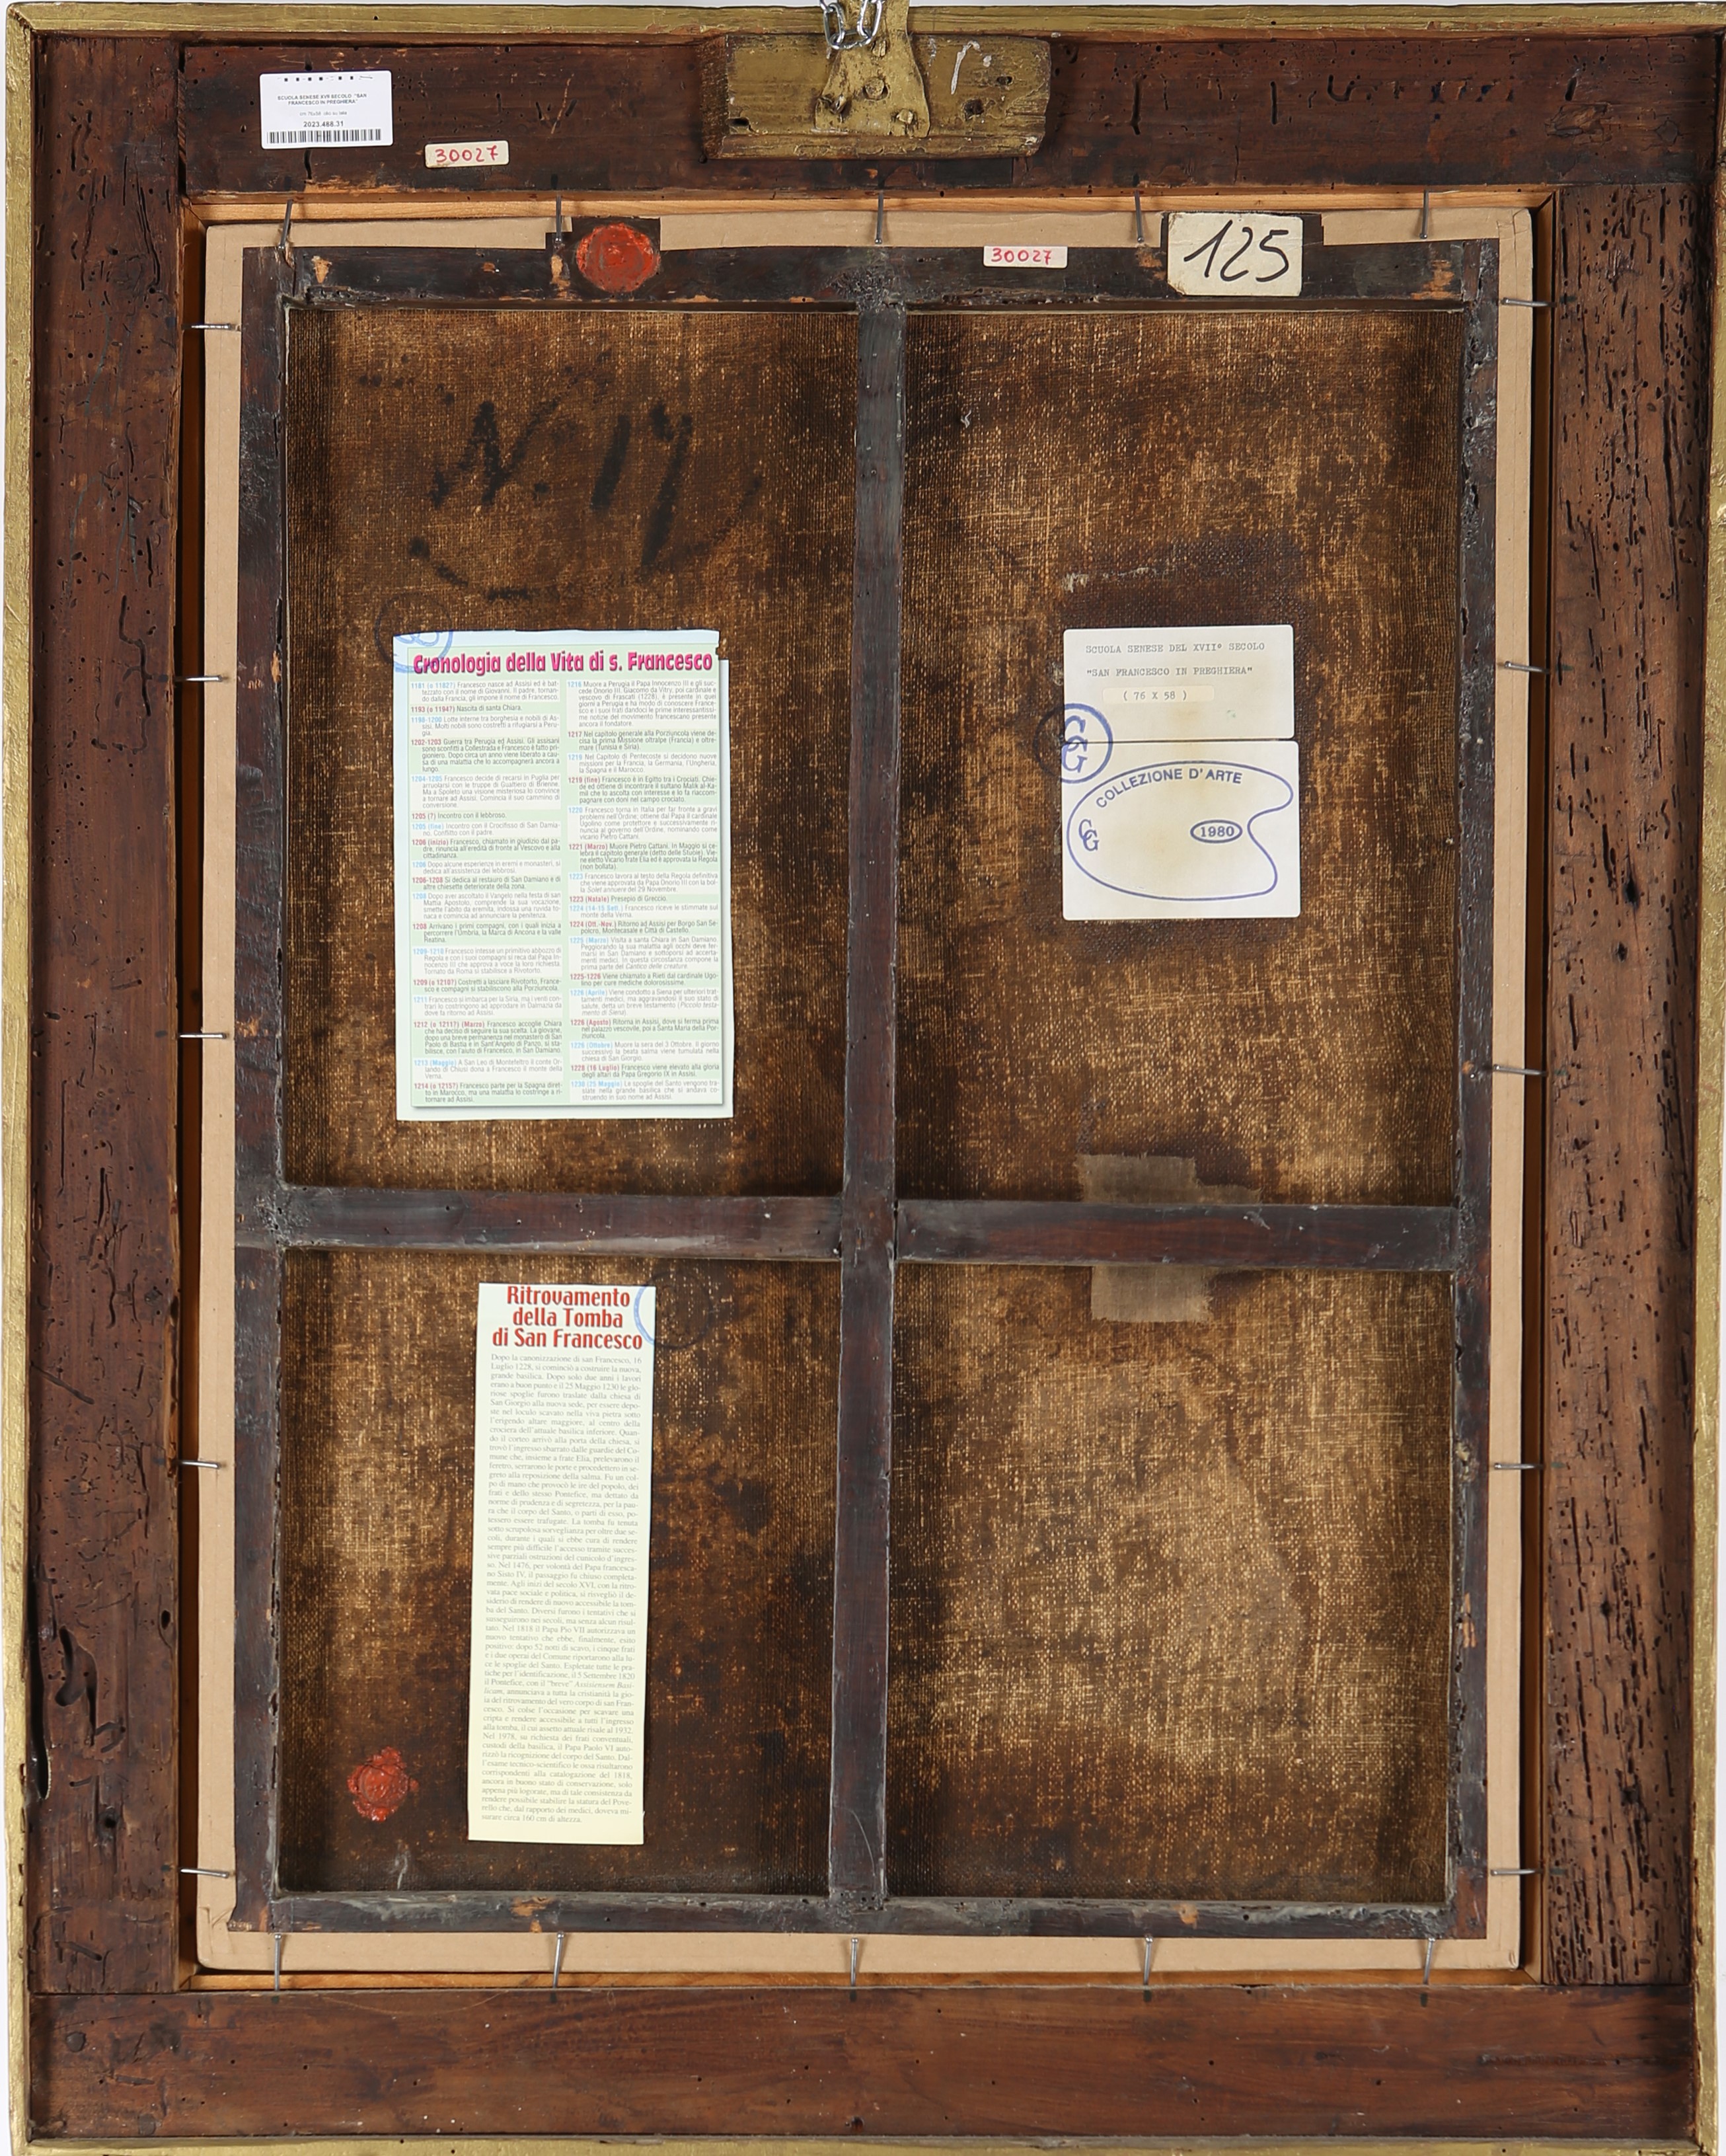 SCUOLA SENESE XVII SECOLO "SAN
FRANCESCO IN PREGHIERA"
2023.488.31
30027
30027
125
N. 17
Cronologia della Vita di s. Francesco
1181 (o 1182?) Francesco nasce ad Assisi ed è bat-
tezzato con il nome di Giovanni. Il padre, tornan-
do dalla Francia, gli impone il nome di Francesco.
1193 (o 1194?) Nascita di santa Chiara.
1198-1200 Lotte interne tra borghesia e nobili di As-
sisi. Molti nobili sono costretti a rifugiarsi a Peru-
gia.
1202-1203 Guerra tra Perugia ed Assisi. Gli assisani
sono sconfitti a Collestrada e Francesco è fatto pri-
gioniero. Dopo circa un anno viene liberato a cau-
sa di una malattia che lo accompagnerà ancora a
lungo.
1204-1205 Francesco decide di recarsi in Puglia per
arruolarsi con le truppe di Gualtiero di Brienne.
Ma a Spoleto una visione misteriosa lo convince
a tornare ad Assisi. Comincia il suo cammino di
conversione.
1205 (?) Incontro con il lebbroso.
1205 (fine) Incontro con il Crocifisso di San Damia-
no. Conflitto con il padre.
1206 (inizio) Francesco, chiamato in giudizio dal pa-
dre, rinuncia all'eredità di fronte al Vescovo e alla
cittadinanza.
1206 Dopo alcune esperienze in eremi e monasteri, si
dedica all'assistenza dei lebbrosi.
1206-1208 Si dedica al restauro di San Damiano e di
altre chiesette deteriorate della zona.
1208 Dopo aver ascoltato il Vangelo nella festa di san
Mattia Apostolo, comprende la sua vocazione,
smette l'abito da eremita, indossa una ruvida to-
naca e comincia ad annunciare la penitenza.
1208 Arrivano i primi compagni, con i quali inizia a
percorrere l'Umbria, la Marca di Ancona e la valle
Reatina.
1209-1210 Francesco intesse un primitivo abbozzo di
Regola e con i suoi compagni si reca dal Papa In-
nocenzo III che approva a voce la loro richiesta.
Tornato da Roma si stabilisce a Rivotorto.
1209 (o 1210?) Costretti a lasciare Rivotorto, France-
sco e compagni si stabiliscono alla Porziuncola.
1211 Francesco si imbarca per la Siria, ma i venti con-
trari lo costringono ad approdare in Dalmazia da
dove fa ritorno ad Assisi.
1212 (o 1211?) (Marzo) Francesco accoglie Chiara
che ha deciso di seguire la sua scelta. La giovane,
dopo una breve permanenza nel monastero di San
Paolo di Bastia e in Sant'Angelo di Panzo, si sta-
bilisce, con l'aiuto di Francesco, in San Damiano.
1213 (Maggio) A San Leo di Montefeltro il conte Or-
lando di Chiusi dona a Francesco il monte della
Verna.
1214 (o 1215?) Francesco parte per la Spagna diret-
to in Marocco, ma una malattia lo costringe a ri-
tornare ad Assisi.
1216 Muore a Perugia il Papa Innocenzo III e gli suc-
cede Onorio III. Giacomo da Vitry, poi cardinale e
vescovo di Frascati (1228), è presente in quei
giorni a Perugia e ha modo di conoscere France-
sco e i suoi frati dandoci le prime interessantissi-
me notizie del movimento francescano presente
ancora il fondatore.
1217 Nel capitolo generale alla Porziuncola viene de-
cisa la prima Missione oltralpe (Francia) e oltre-
mare (Tunisia e Siria).
1219 Nel Capitolo di Pentecoste si decidono nuove
missioni per la Francia, la Germania, l'Ungheria,
la Spagna e il Marocco.
1219 (fine) Francesco è in Egitto tra i Crociati. Chie-
de ed ottiene di incontrare il sultano Malik al-Ka-
mil che lo ascolta con interesse e lo fa riaccom-
pagnare con doni nel campo crociato.
1220 Francesco torna in Italia per far fronte a gravi
problemi nell'Ordine; ottiene dal Papa il cardinale
Ugolino come protettore e successivamente ri-
nuncia al governo dell'Ordine, nominando come
vicario Pietro Cattani.
1221 (Marzo) Muore Pietro Cattani. In Maggio si ce-
lebra il capitolo generale (detto delle Stuoie). Vie-
ne eletto Vicario frate Elia ed è approvata la Regola
(non bollata).
1223 Francesco lavora al testo della Regola definitiva
che viene approvata da Papa Onorio III con la bol-
la Solet annuere del 29 Novembre.
1223 (Natale) Presepio di Greccio.
1224 (14-15 Sett.) Francesco riceve le stimmate sul
monte della Verna.
1224 (Ott.-Nov.) Ritorno ad Assisi per Borgo San Se-
polcro, Montecasale e Città di Castello.
1225 (Marzo) Visita a santa Chiara in San Damiano.
Peggiorando la sua malattia agli occhi deve fer-
marsi in San Damiano e sottoporsi ad accerta-
menti medici. In questa circostanza compone la
prima parte del Cantico delle creature.
1225-1226 Viene chiamato a Rieti dal cardinale Ugo-
lino per cure mediche dolorosissime.
1226 (Aprile) Viene condotto a Siena per ulteriori trat-
tamenti medici, ma aggravandosi il suo stato di
salute, detta un breve testamento (Piccolo testa-
mento di Siena).
1226 (Agosto) Ritorna in Assisi, dove si ferma prima
nel palazzo vescovile, poi a Santa Maria della Por-
ziuncola.
1226 (Ottobre) Muore la sera del 3 Ottobre. Il giorno
successivo la beata salma viene tumulata nella
chiesa di San Giorgio.
1228 (16 Luglio) Francesco viene elevato alla gloria
degli altari da Papa Gregorio IX in Assisi.
1230 (25 Maggio) Le spoglie del Santo vengono tra-
slate nella grande basilica che si andava co-
struendo in suo nome ad Assisi.
SCUOLA SENESE DEL XVII° SECOLO
"SAN FRANCESCO IN PREGHIERA"
( 76 X 58 )
GG
COLLEZIONE D'ARTE
GG
1980
Ritrovamento
della Tomba
di San Francesco
Dopo la canonizzazione di san Francesco, 16
Luglio 1228, si cominciò a costruire la nuova,
grande basilica. Dopo solo due anni i lavori
erano a buon punto e il 25 Maggio 1230 le glo-
riose spoglie furono traslate dalla chiesa di
San Giorgio alla nuova sede, per essere depo-
ste nel loculo scavato nella viva pietra sotto
l'erigendo altare maggiore, al centro della
crociera dell'attuale basilica inferiore. Quan-
do il corteo arrivò alla porta della chiesa, si
trovò l'ingresso sbarrato dalle guardie del Co-
mune che, insieme a frate Elia, prelevarono il
feretro, serrarono le porte e procedettero in se-
greto alla reposizione della salma. Fu un col-
po di mano che provocò le ire del popolo, dei
frati e dello stesso Pontefice, ma dettato da
norme di prudenza e di segretezza, per la pau-
ra che il corpo del Santo, o parti di esso, po-
tessero essere trafugate. La tomba fu tenuta
sotto scrupolosa sorveglianza per oltre due se-
coli, durante i quali si ebbe cura di rendere
sempre più difficile l'accesso tramite succes-
sive parziali ostruzioni del cunicolo d'ingres-
so. Nel 1476, per volontà del Papa francesca-
no Sisto IV, il passaggio fu chiuso completa-
mente. Agli inizi del secolo XVI, con la ritro-
vata pace sociale e politica, si risvegliò il de-
siderio di rendere di nuovo accessibile la tom-
ba del Santo. Diversi furono i tentativi che si
susseguirono nei secoli, ma senza alcun risul-
tato. Nel 1818 il Papa Pio VII autorizzava un
nuovo tentativo che ebbe, finalmente, esito
positivo: dopo 52 notti di scavo, i cinque frati
e i due operai del Comune riportarono alla lu-
ce le spoglie del Santo. Espletate tutte le pra-
tiche per l'identificazione, il 5 Settembre 1820
il Pontefice, con il "breve" Assisiensem Basi-
licam, annunciava a tutta la cristianità la gio-
ia del ritrovamento del vero corpo di san Fran-
cesco. Si colse l'occasione per scavare una
cripta e rendere accessibile a tutti l'ingresso
alla tomba, il cui assetto attuale risale al 1932.
Nel 1978, su richiesta dei frati conventuali,
custodi della basilica, il Papa Paolo VI auto-
rizzò la ricognizione del corpo del Santo. Dal-
l'esame tecnico-scientifico le ossa risultarono
corrispondenti alla catalogazione del 1818,
ancora in buono stato di conservazione, solo
appena più logorate, ma di tale consistenza da
rendere possibile stabilire la statura del Pove-
rello che, dal rapporto dei medici, doveva mi-
surare circa 160 cm di altezza.